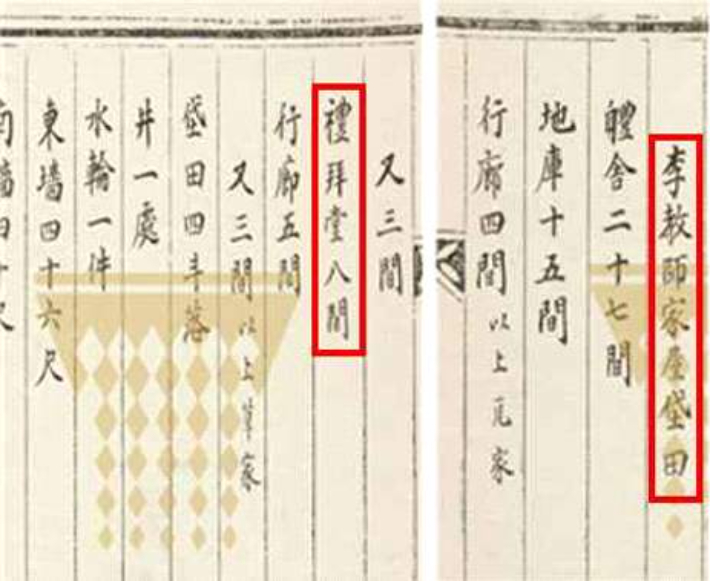 李教師家屋垈田
軆舍二十七間
地庫十五間
行廊四間 以上瓦家
又三間
禮拜堂八間
行廊五間
又三間 以上草家
垈田四斗落
井一處
水輪一件
東墻四十六尺